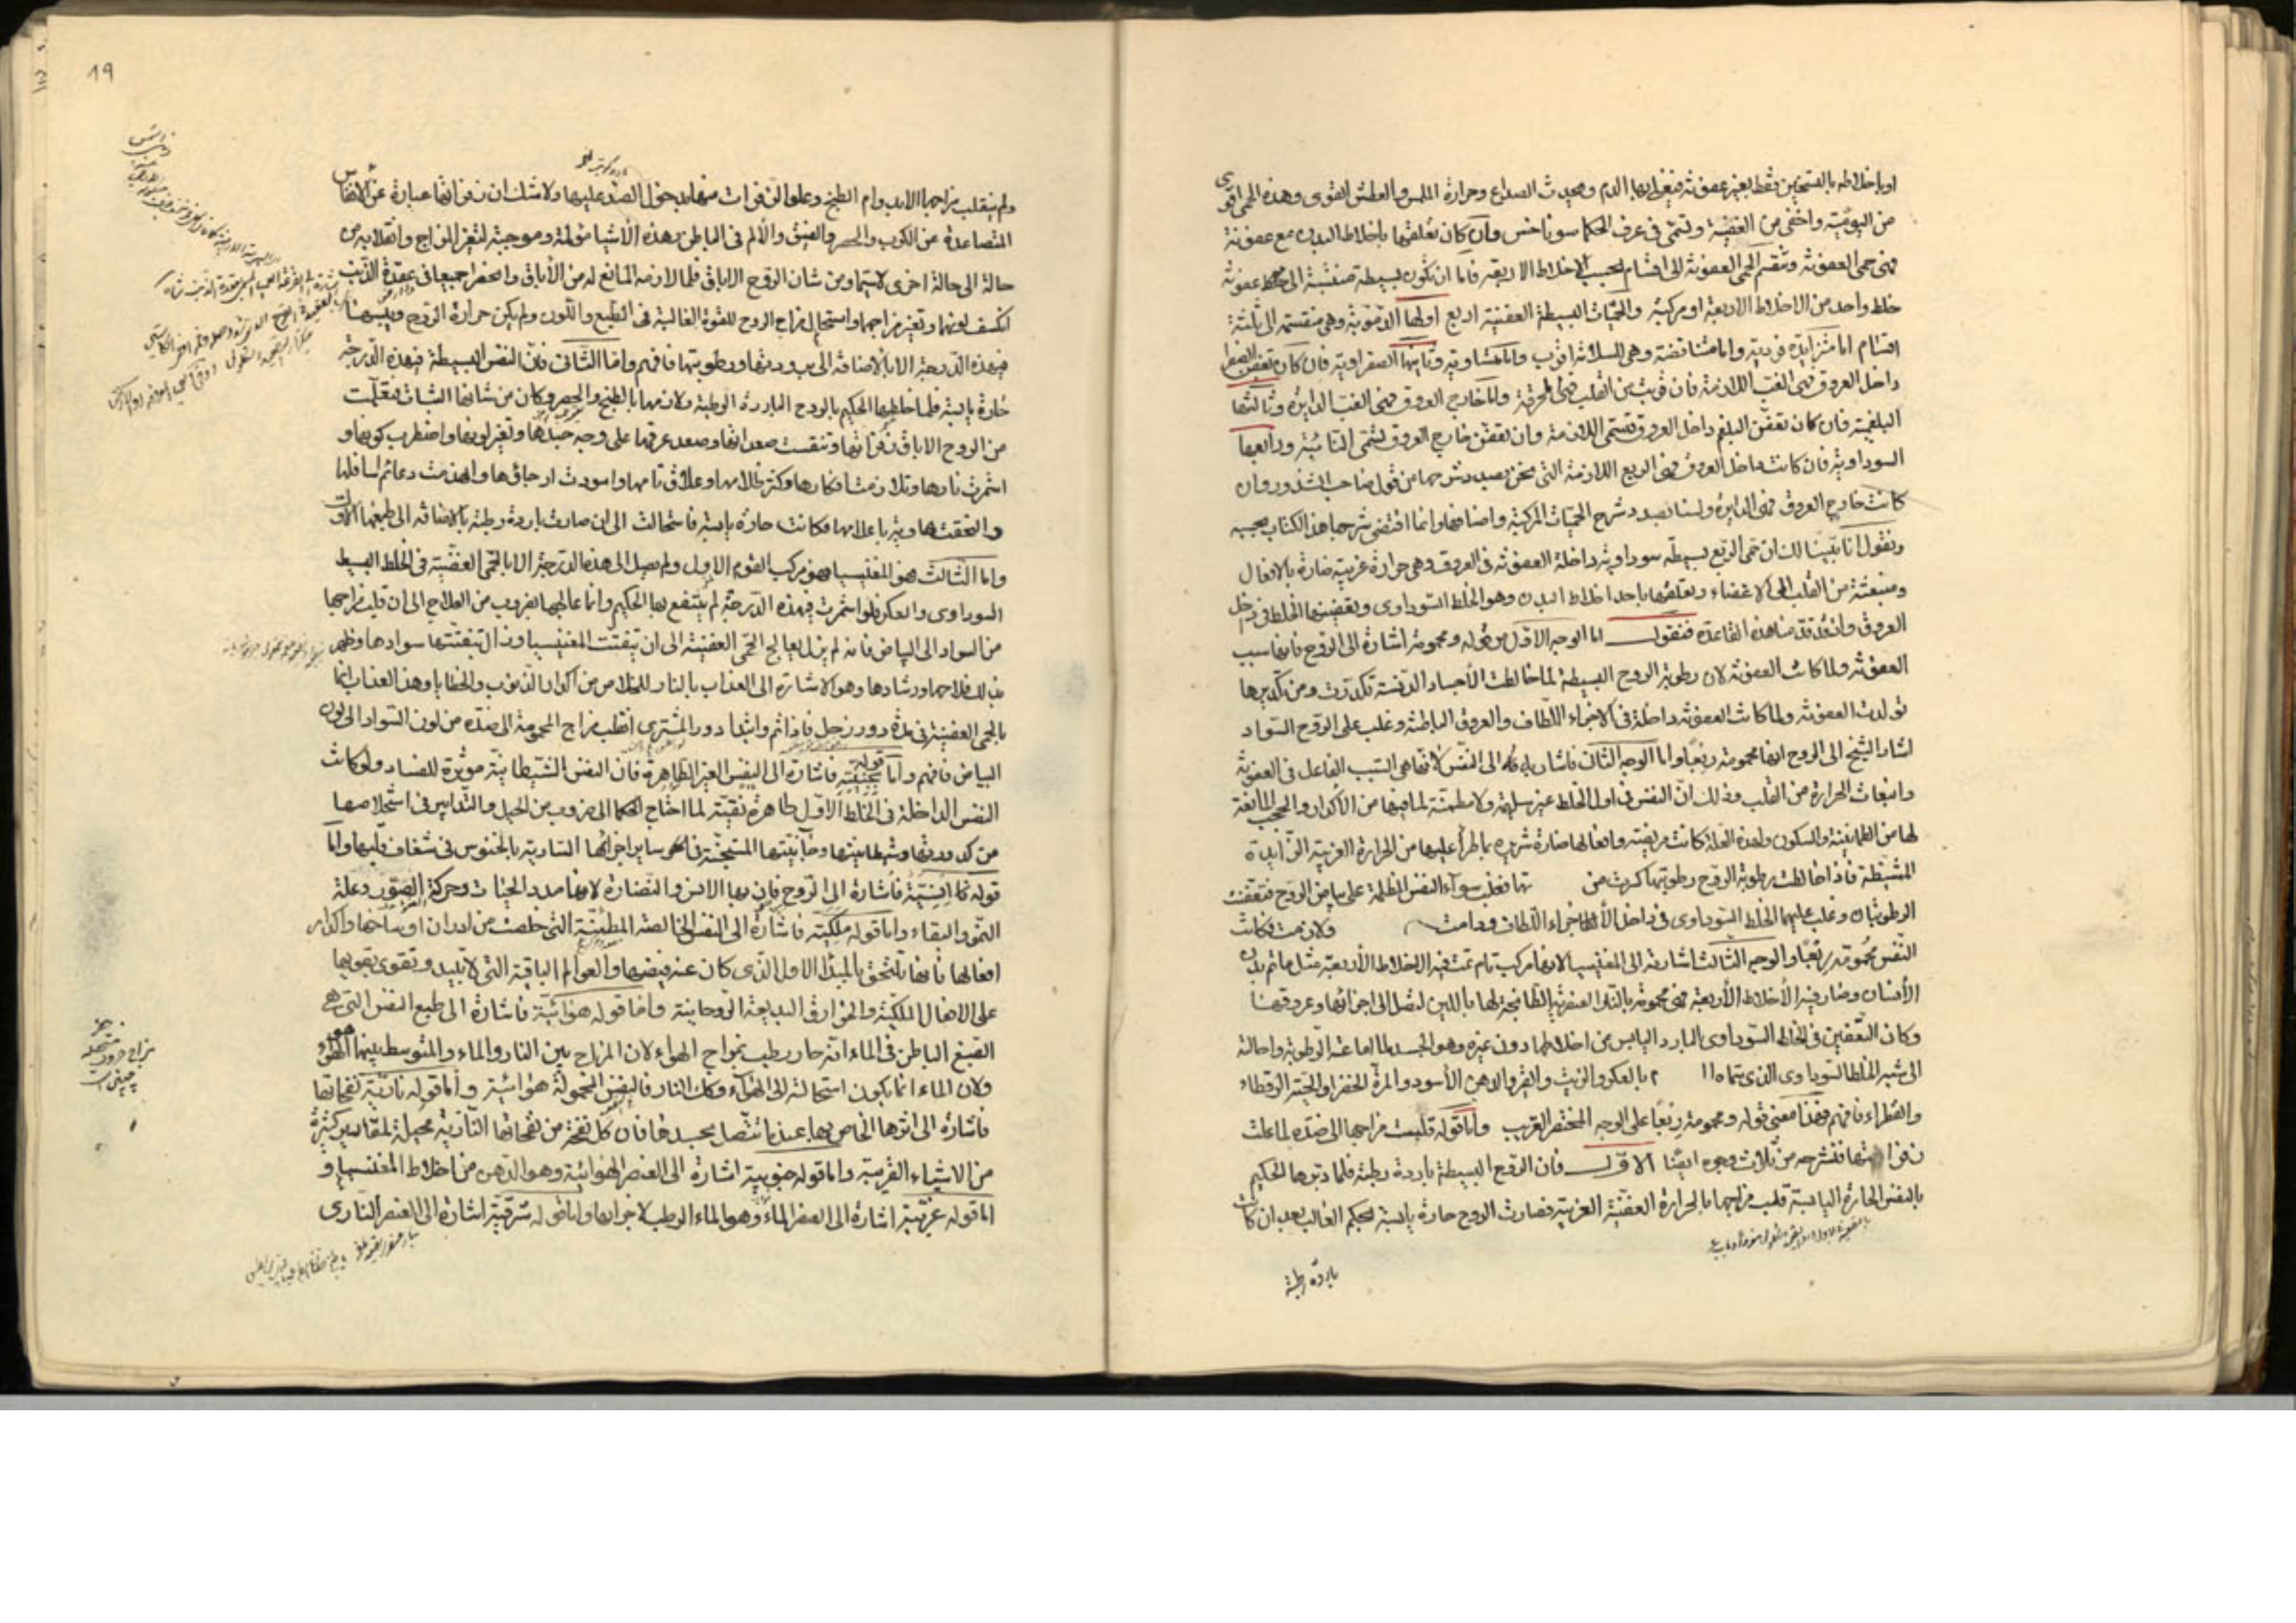 او باخلاطه بالتسخين فقط بغير عفونة فيغلى بها الدم ويحدث الصداع وحرارة الملمس والعطش القوى وهذه الحمى اقوى
من اليومية واخفى من العفنية وتسمى فى عرف الحكما سونوخس وان كان تعلقها باخلاط البدن مع عفونة
فهى حمى العفونة وتنقسم الحمى العفونة الى اقسام بحسب الاخلاط الاربعة فاما ان تكون بسيطة منتسبة الى عفونة
خلط واحد من الاخلاط الاربعة او مركبة والحميات البسيطة العفنية اربع اولها الدموية وهى منقسمة الى ثلثة
اقسام اما متزايدة قوية واما متناقصة وهى السلامة اقرب واما متساوية وثانيها الصفراوية فان كان تعفن الصفرا
داخل العروق فهى الغب اللازمة فان قربت من القلب فهى المحرقة واما خارج العروق فهى الغب الدايرة وثالثها
البلغمية فان كان تعفن البلغم داخل العروق تسمى اللازمة وان تعفن خارج العروق تسمى النائبة ورابعها
السوداوية فان كانت داخل العروق فهى الربع اللازمة التى نحن بصدد شرحها من قول صاحب الشذور وان
كانت خارج العروق فهى الدايرة ولسنا بصدد شرح الحميات المركبة واصنافها وانما اقتضى شرح هذا الكتاب بحسبه
ونقول انا بينا لك ان حمى الربع بسيطة سوداوية داخلة العفونة فى العروق وهى حرارة غريبة ضارة بالافعال
ومنبعثة من القلب الى الاعضاء وتعلقها باحد اخلاط البدن وهو الخلط السوداوى وتعفينها الخلط فى داخل
العروق واذ قد قدمنا هذه القاعدة فنقول اما الوجه الاول من قوله ومحمومة اشارة الى الروح فانها سبب
العفونة ولما كانت العفونة لان رطوبة الروح البسيطة لما خالطت الأجساد الدنسة تكدرت ومن تكديرها
تولدت العفونة ولما كانت العفونة داخلة فى الاجزاء اللطاف والعروق الباطنة وغلب على الروح السواد
اشار الشيخ الى الروح انها محمومة ربعا واما الوجه الثانى فاشارته الى النفس لأنها هى السبب الفاعل فى العفونة
وانبعاث الحرارة من القلب وذلك ان النفس فى اول الخلط غير سليمة ولا مطمئنة لما فيها من الأكدار والحجب المانعة
لها من الطمانينة والسكون ولهذه العلة كانت مريضة وافعالها ضارة شريرة بما طرأ عليها من الحرارة الغريبة الزايدة
المشيطة فاذا خالطت رطوبة الروح رطوبتها كدرت من تها فغلب سواد النفس المظلمة على بياض الروح فتعفنت
الرطوبتان وغلب عليهما الخلط السوداوى فى داخل الأجزاء اللطاف ودامت ولازمت فكانت
النفس محمومة ربعا والوجه الثالث اشارة الى المغنيسيا لانها مركب تام تمت فيه الاخلاط الأربعة مثل ما تم بدن
الأنسان وصار فيه الأخلاط الأربعة فهى محمومة بالنار العنصرية الطابخة لها باللين لتصل الى اجزائها وعروقها
وكان التعفين فى الخلط السوداوى البارد اليابس من اخلاطها دون غيره وهو الجسد لاماعته الرطوبة واحالته
الى شبه الخلط السوداوى الذى سماه بالعكر والزيت والقير والدهن الأسود والمرة الخضرا والحية الرقطاء
والقطراء فافهم فهذا معنى قوله ومحمومة ربعا على الوجه المختصر القريب واما قوله قلبت مزاجها الى ضده لما علت
زفراتها فنشرحه من ثلاث وجوه ايضا الاول فان الروح البسيطة باردة رطبة فلما دبرها الحكيم
بالنفس الحارة اليابسة قلب مزاجها بالحرارة العفنية الغريبة فصارت الروح حارة يابسة بحكم الغالب بعد ان كانت
باردة رطبة
19
ولم ينقلب مزاجها الا بدوام الطبخ وعلو الزفرات منها بدخول الضد عليها ولا شك ان زفراتها عبارة عن الانفاس
المتصاعدة عن الكرب والحصر والضيق والألم فى الباطن وهذه الأشيا مؤلمة وموجبة لتغير المزاج وانقلابه من
حالة الى حالة اخرى لاسيما ومن شان الروح الاباق فلما لازمه المانع له من الأباق وانحصرا جميعا فى عقدة الذنب
انكسف لونهما وتغير مزاجهما واستحال مزاج الروح للقوة الغالبة فى الطبع واللون ولم يكن حرارة الروح ويبسها
فى هذه الدرجة الا بالاضافة الى برودتها ورطوبتها فافهم واما الثانى فان النفس البسيطة فى هذه الدرجة
حارة يابسة فلما خلطها الحكيم بالروح الباردة الرطبة ولازمها بالطبخ والحصر وكان من شانها الثبات فتعلمت
من الروح الاباق زفراتها وتنفست صعدائها وصعد عرقها على وجه جسدها وتغير لونها واضطرب كونها و
اضرمت نارها وتلازمت افكارها وكثر ظلامها وعلا قتامها واسودت ارجاؤها وانهدمت دعائم اسافلها
والتحقت هاوية باعلامها فكانت حارة يابسة فاستحالت الى ان صارت باردة رطبة بالاضافة الى طبعها الاول
واما الثالث فهو المغنيسيا وهو مركب القوم الاول ولم يصل الى هذه الدرجة الا بالحمى العفنية فى الخلط البسيط
السوداوى والعكر فلو استمرت فى هذه الدرجة لم ينتفع بها الحكيم وانما عالجها بضروب من العلاج الى ان قلب مزاجها
من السواد الى البياض فانه لم يزل يعالج الحمى العفنية الى ان تفتتت المغنيسيا وزال بتفتتها سوادها وظهر
بذلك فلاحها ورشادها وهو الاشارة الى العذاب بالنار للخلاص من اكدار الذنوب والخطايا وهذا العذاب انما
بالحمى العفنية فى مدة دور زحل فاذا تم وابتدا دور المشترى انقلب مزاج المحمومة الى ضده من لون السواد الى لون
البياض فافهم واما قوله جنية فاشارة الى النفس الغير الطاهرة فان النفس الشيطانية مؤثرة للفساد ولو كانت
النفس الداخلة فى الخلط الاول طاهرة نقية لما احتاج الحكما الى ضروب من الحيل والتدابير فى استخلاصها
من كدورتها وشيطانيتها وجانيتها المستجنة فى ساير اجزائها السارية بالخنوس فى شغاف قلبها واما
قوله انسية فاشارة الى الروح فان بها الانس والنضارة لانها مدد الحياة وحركة الصور وعلة
النمو والبقاء واما قوله ملكية فاشارة الى النفس الخالصة المطمئنة التى خلصت من ادران اوساخها واكدار
افعالها فانها تلتحق بالمبدا الاول الذى كان عنه فيضها والعوالم الباقية التى لا تبيد وتقوى بقوتها
على الافعال الملكية والخوارق البديعة الروحانية واما قوله هوائية فاشارة الى طبع النفس التى هى
الصبغ الباطن فى الماء انه حار رطب بمزاج الهواء لان المزاج بين النار والماء والمتوسط بينهما هو الهوى
ولان الماء انما يكون استحالته الى الهواء وكذلك النار فالنفس المحمولة هوائية واما قوله نارية نفحاتها
فاشارة الى اثرها الخاص بها عند ما تتصل بجسدها فان كل نفحة من نفحاتها النارية محيلة لمقادير كثيرة
من الاشياء القريبة واما قوله جنوبية اشارة الى العنصر الهوائية وهو الدهن من اخلاط المغنيسيا و
اما قوله غربية اشارة الى العنصر الماء وهو الماء الرطب لاجزائها واما قوله شرقية اشارة الى العنصر النارى